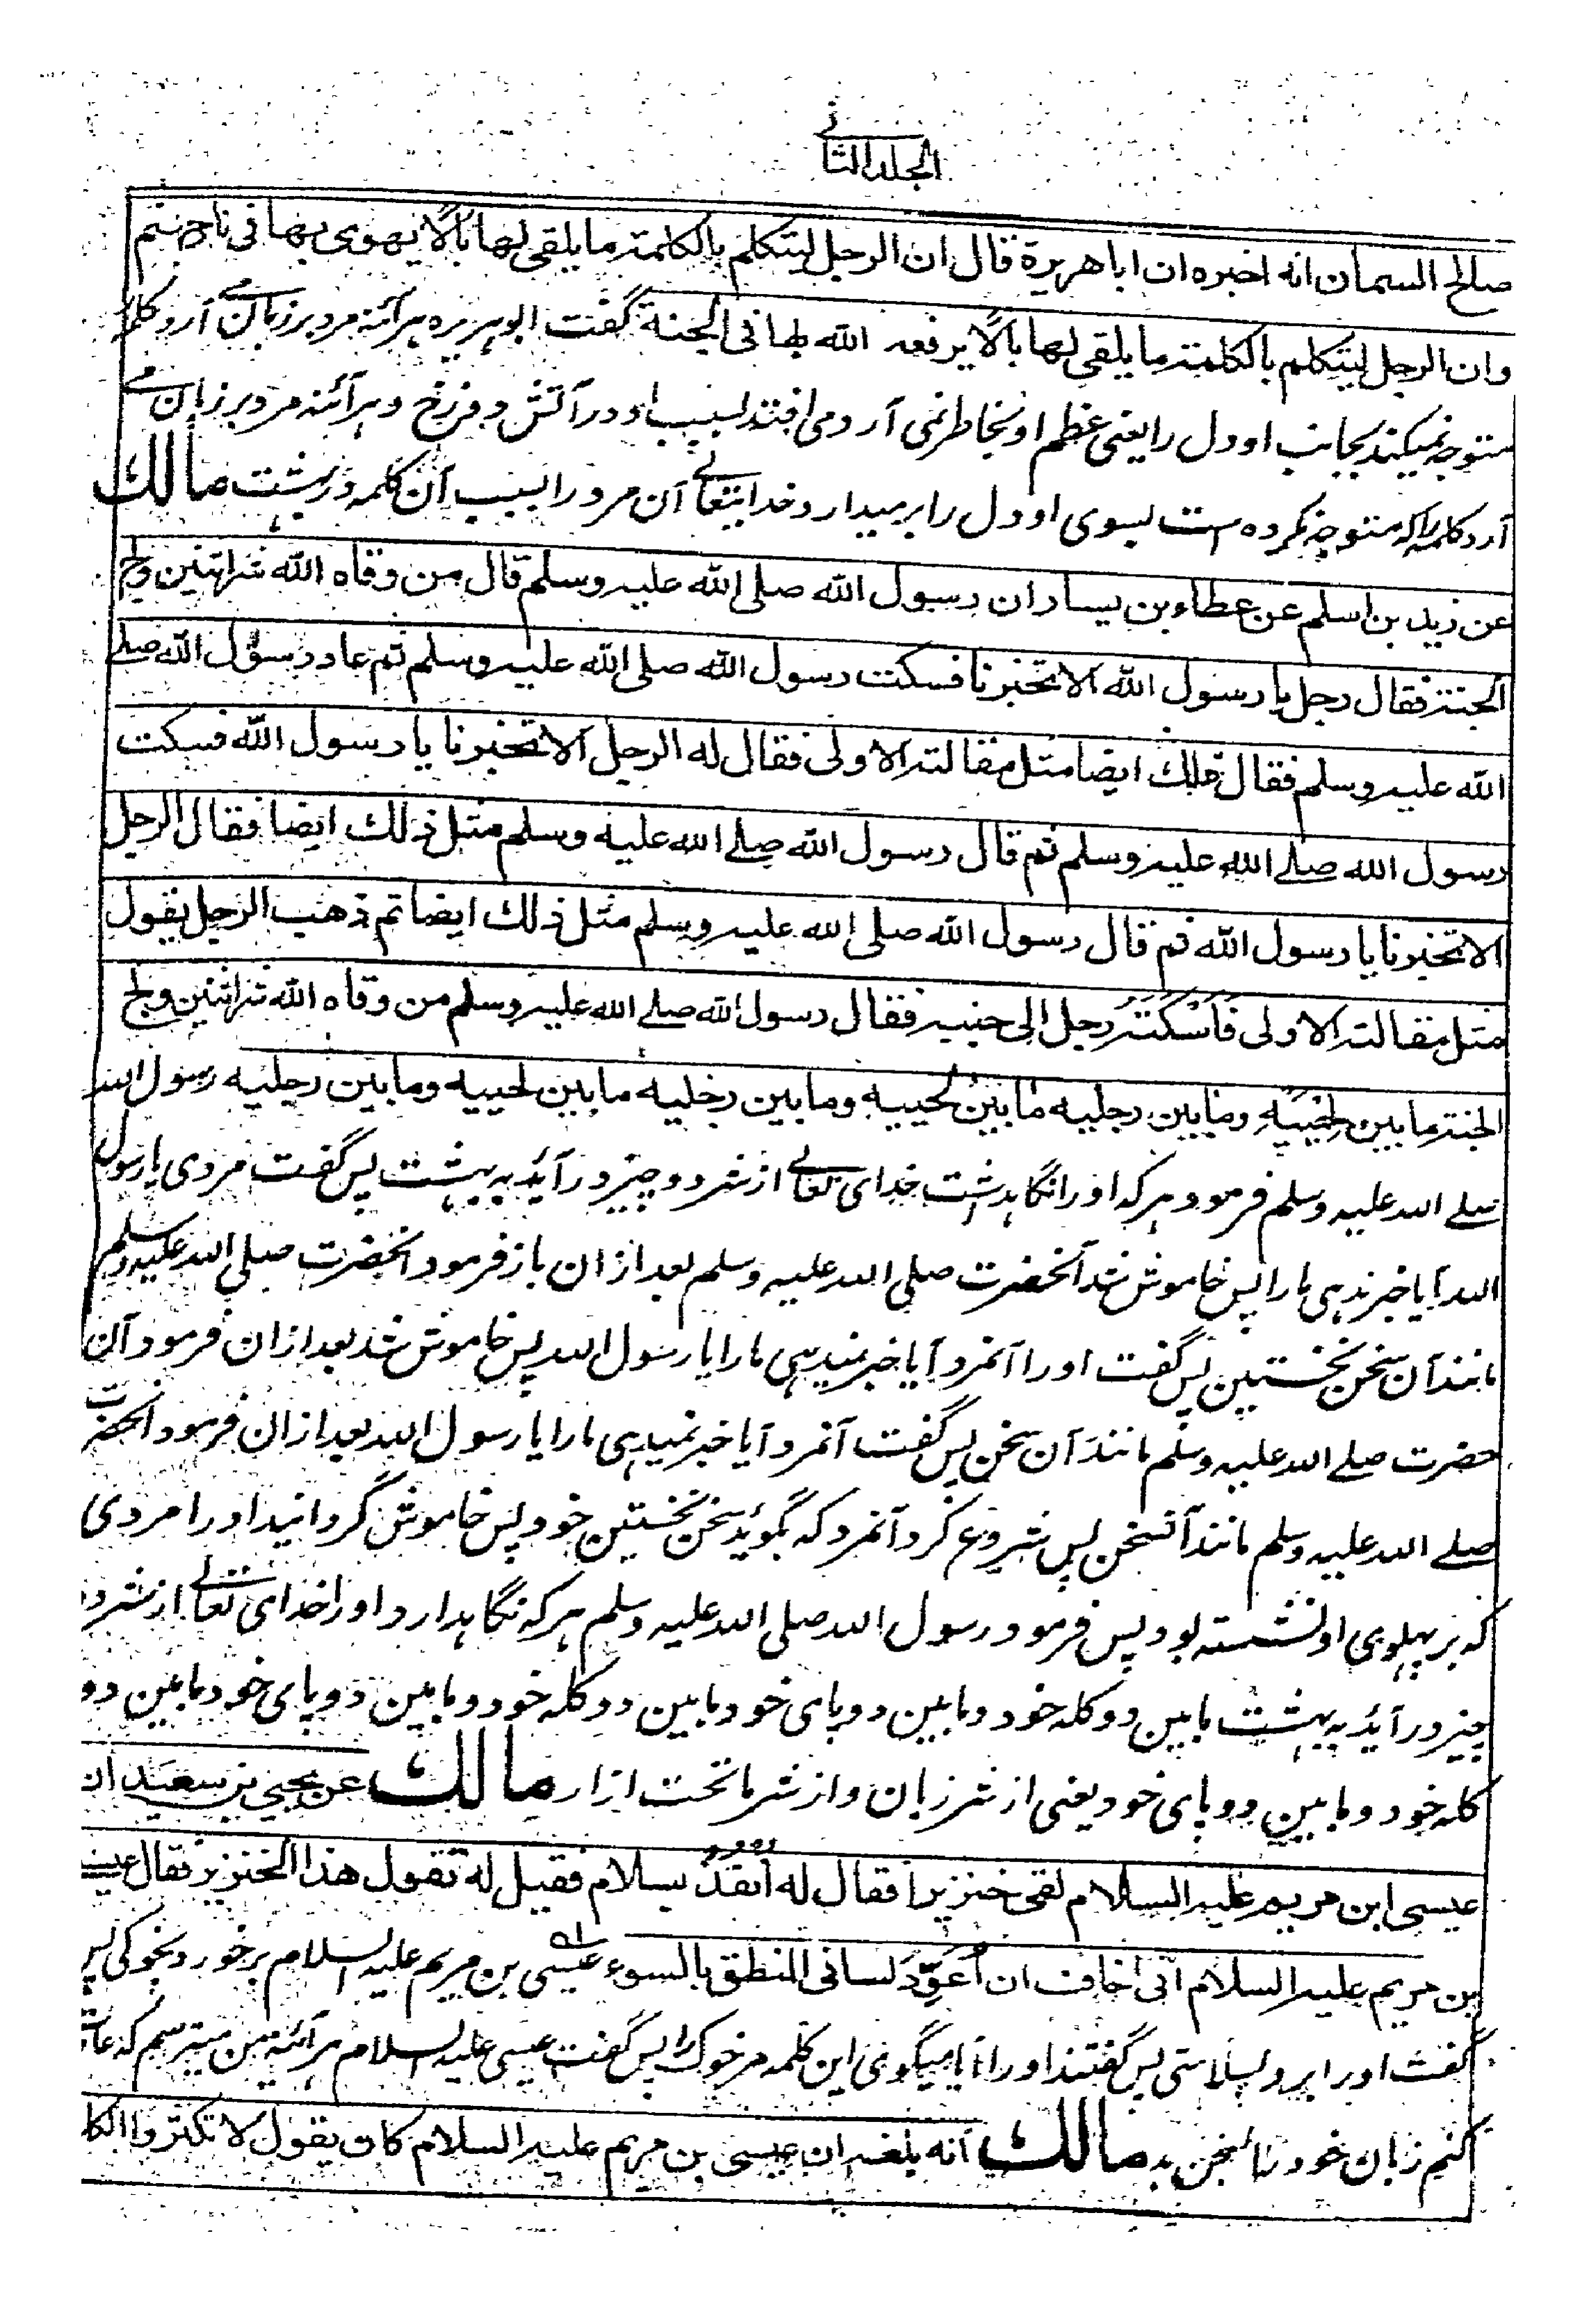 الجلد الثاني
صالح السمان انه اخبره ان ابا هريرة قال ان الرجل ليتكلم بالكلمة ما يلقي لها بالًا يهوي بها في نار جهنم
وان الرجل ليتكلم بالكلمة ما يلقي لها بالًا يرفعه الله بها في الجنة گفت ابو هریره هرآئنه مرد بر زبان می آرد کلمه
متوجه نمیکند بجانب او دل را یعنی عظم او بخاطر نمی آرد می افتد بسبب او در آتش دوزخ و هرآئنه مرد بر زبان می
آرد کلمه را که متوجه نکرده است بسوی او دل را برمیدارد خدایتعالے آن مرد را بسبب آن کلمه در بهشت مالك
عن زيد بن اسلم عن عطاء بن يسار ان رسول الله صلى الله عليه وسلم قال من وقاه الله شر اثنين ولج
الجنة فقال رجل يا رسول الله الا تخبرنا فسكت رسول الله صلى الله عليه وسلم ثم عاد رسول الله صلے
الله عليه وسلم فقال ذلك ايضا مثل مقالته الاولى فقال له الرجل الا تخبرنا يا رسول الله فسكت
رسول الله صلے الله عليه وسلم ثم قال رسول الله صلے الله عليه وسلم مثل ذلك ايضا فقال الرجل
الا تخبرنا يا رسول الله ثم قال رسول الله صلى الله عليه وسلم مثل ذلك ايضا ثم ذهب الرجل يقول
مثل مقالته الاولى فَاَسْكَتَهُ رَجل الى جنبه فقال رسول الله صلے الله عليه وسلم من وقاه الله شر اثنين ولج
الجنة ما بين لحييه وما بين رجليه ما بين لحييه وما بين رجليه ما بين لحييه وما بين رجليه رسول الله
صلے الله علیه وسلم فرمود هر که اورا نگاهداشت خدای تعالے از شر دو چیز در آید به بهشت پس گفت مردی یا رسول
الله آیا خبر ندهی ما را پس خاموش شد آنحضرت صلی الله علیه وسلم بعد ازان باز فرمود آنحضرت صلی الله علیه وسلم
مانند آن سخن نخستین پس گفت اورا آنمرد آیا خبر نمیدهی ما را یا رسول الله پس خاموش شد بعد ازان فرمود آن
حضرت صلے الله علیه وسلم مانند آن سخن پس گفت آنمرد آیا خبر نمیدهی ما را یا رسول الله بعد ازان فرمود آنحضرت
صلے الله علیه وسلم مانند آنسخن پس شروع کرد آنمرد که بگوید سخن نخستین خود پس خاموش گردانید اورا مردی
که بر پهلوی او نشسته بود پس فرمود رسول الله صلی الله علیه وسلم هر که نگاهدارد اورا خدای تعالے از شر دو
چیز در آید به بهشت ما بین دو کله خود و ما بین دو پای خود ما بین دو کله خود و ما بین دو پای خود ما بین دو
کله خود و ما بین دو پای خود یعنی از شر زبان و از شر ما تحت ازار مالك عن يحيى بن سعيد ان
عيسى ابن مريم عليه السلام لقى خنزيراً فقال له اُنفُذْ بسلام فقيل له تقول هذا الخنزير فقال عيسى
بن مريم عليه السلام اني اخاف ان اُعَوِّدَ لساني المنطق بالسوء عیسی بن مریم علیه السلام برخورد بخوکی پس
گفت اورا برو بسلامتی پس گفتند اورا آیا میگوی این کلمه مر خوک را پس گفت عیسی علیه السلام هرآئنه من میترسم که عادت
کنم زبان خود را بسخن بد مالك انه بلغه ان عيسى بن مريم عليه السلام كان يقول لا تكثروا الكلا